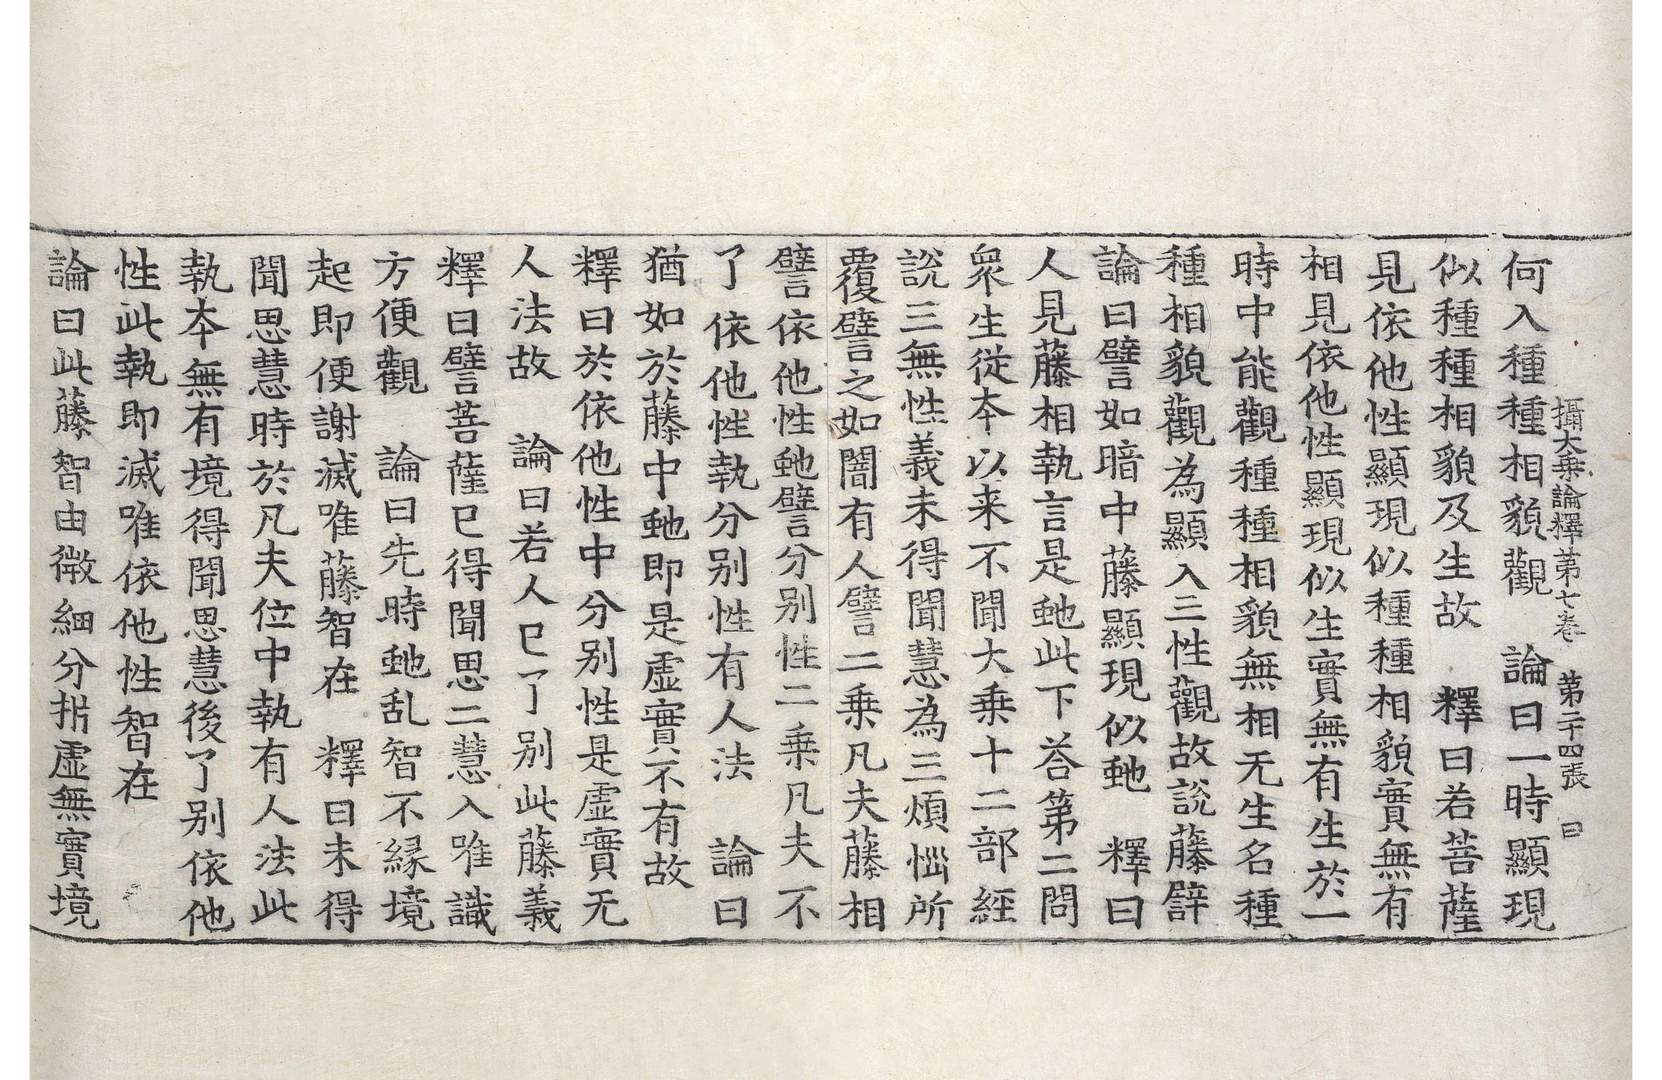 攝大乘論釋第七卷 第二十四張 曰
何入種種相貌觀 論曰一時顯現
似種種相貌及生故 釋曰若菩薩
見依他性顯現似種種相貌實無有
相見依他性顯現似生實無有生於一
時中能觀種種相貌無相无生名種
種相貌觀為顯入三性觀故說藤譬
論曰譬如暗中藤顯現似虵 釋曰
人見藤相執言是虵此下荅第二問
衆生從本以来不聞大乗十二部經
說三無性義未得聞慧為三煩惱所
覆譬之如闇有人譬二乗凡夫藤相
譬依他性虵譬分别性二乗凡夫不
了依他性執分别性有人法 論曰
猶如於藤中虵即是虛實不有故
釋曰於依他性中分别性是虛實无
人法故 論曰若人已了别此藤義
釋曰譬菩薩已得聞思二慧入唯識
方便觀 論曰先時虵乱智不緣境
起即便謝滅唯藤智在 釋曰未得
聞思慧時於凡夫位中執有人法此
執本無有境得聞思慧後了别依他
性此執即滅唯依他性智在
論曰此藤智由微細分析虛無實境